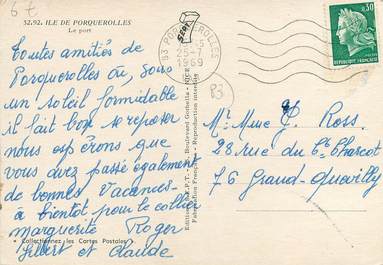 6 €
52.92. ILE DE PORQUEROLLES
Le port
Toutes amitiés de
Porquerolles où, sous
un soleil formidable
il fait bon se reposer
nous espérons que
vous avez passé également
de bonnes vacances
à bientôt pour le collier
marguerite Roger
Gilbert et Claude
« Collectionnez les Cartes Postales »
83 PORQUEROLLES
25-7
1969
0,30
REPUBLIQUE FRANÇAISE
83
Mr Mme G. Ross
28 rue du Ct Charcot
76 Grand-Quevilly